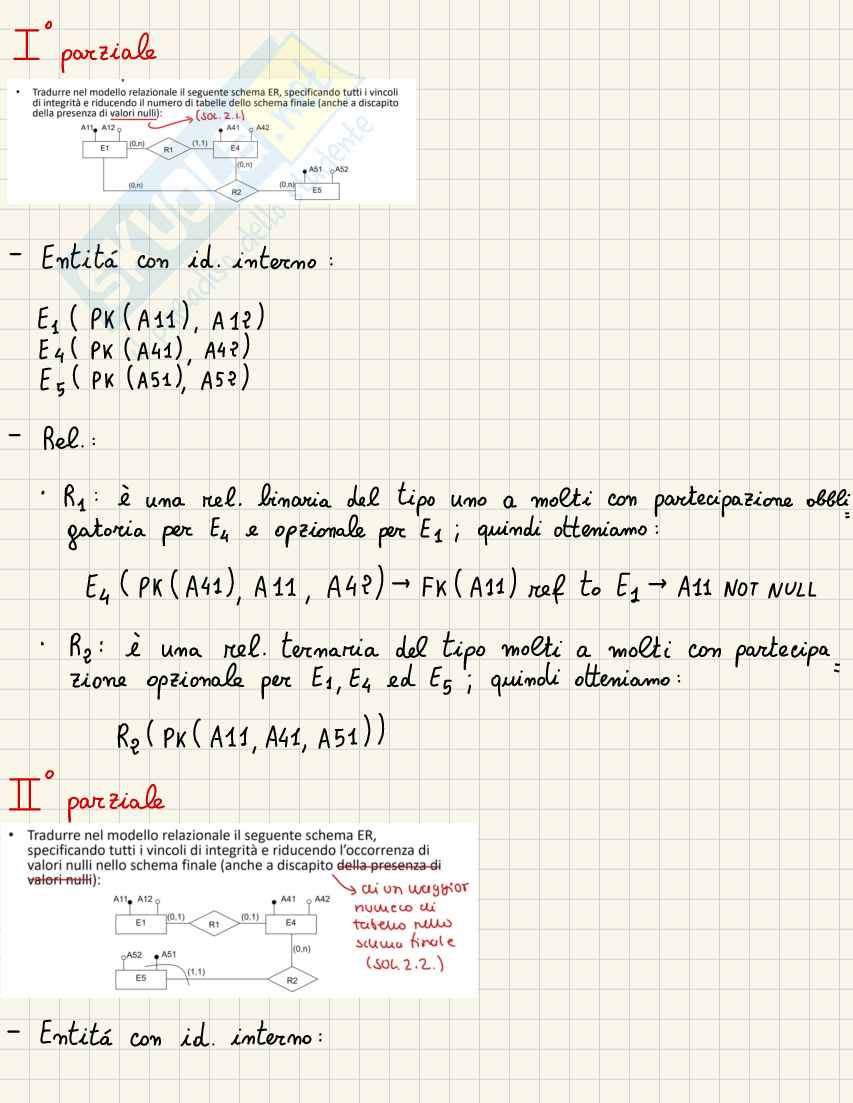 I° parziale
• Tradurre nel modello relazionale il seguente schema ER, specificando tutti i vincoli
di integrità e riducendo il numero di tabelle dello schema finale (anche a discapito
della presenza di valori nulli):
(sol. 2.1.)
A11 A12 A41 A42
E1 (0,n) R1 (1,1) E4
(0,n)
A51 A52
(0,n) R2 (0,n) E5
SKUOLA.net
il paradiso dello studente
- Entitá con id. interno:
E1 ( PK (A11), A12)
E4 ( PK (A41), A42)
E5 ( PK (A51), A52)
- Rel.:
· R1: è una rel. binaria del tipo uno a molti con partecipazione obbli=
gatoria per E4 e opzionale per E1; quindi otteniamo:
E4 ( PK(A41), A11, A42) → FK(A11) ref to E1 → A11 NOT NULL
· R2: è una rel. ternaria del tipo molti a molti con partecipa=
zione opzionale per E1, E4 ed E5; quindi otteniamo:
R2 ( PK( A11, A41, A51))
II° parziale
• Tradurre nel modello relazionale il seguente schema ER,
specificando tutti i vincoli di integrità e riducendo l'occorrenza di
valori nulli nello schema finale (anche a discapito della presenza di
valori nulli):
di un maggior
numero di
tabelle nello
schema finale
(sol. 2.2.)
A11 A12 A41 A42
E1 (0,1) R1 (0,1) E4
(0,n)
A52 A51
E5 (1,1) R2
- Entitá con id. interno: